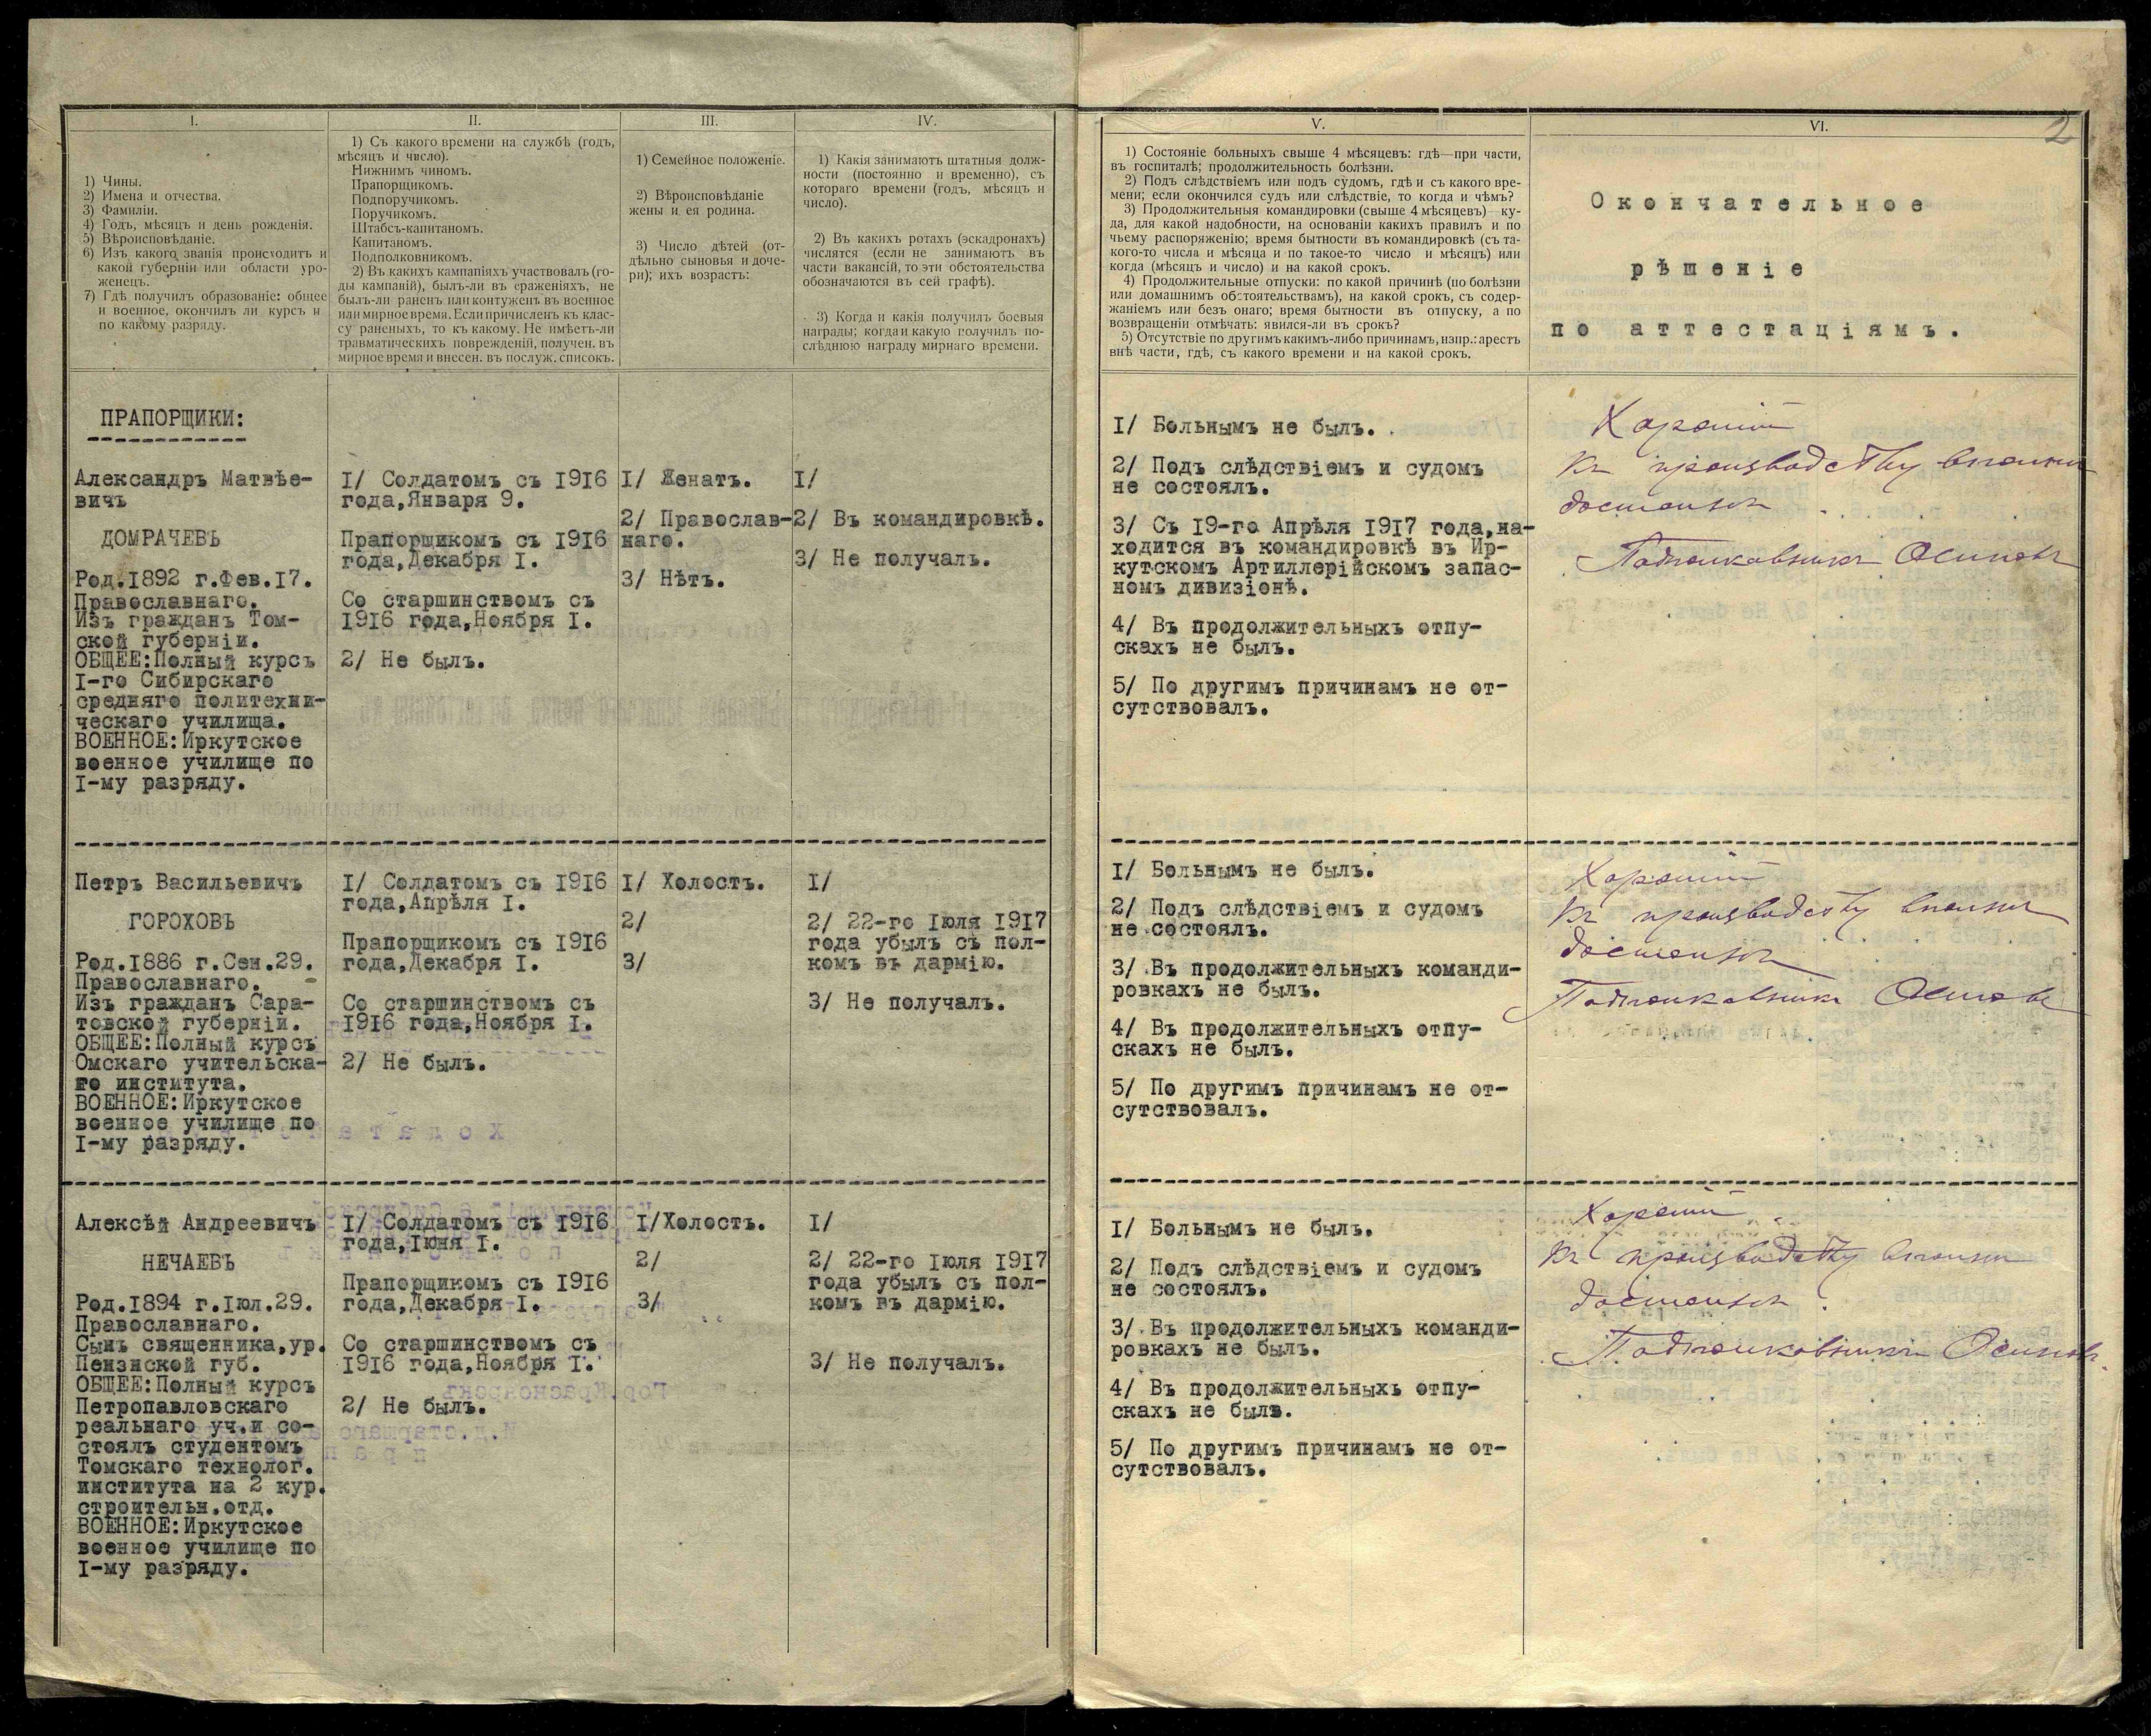 2
I.
1) Чины.
2) Имена и отчества.
3) Фамиліи.
4) Годъ, мѣсяцъ и день рожденія.
5) Вѣроисповѣданіе.
6) Изъ какого званія происходитъ и
какой губерніи или области уро-
женецъ.
7) Гдѣ получилъ образованіе: общее
и военное, окончилъ ли курсъ и
по какому разряду.
II.
1) Съ какого времени на службѣ (годъ,
мѣсяцъ и число).
Нижнимъ чиномъ.
Прапорщикомъ.
Подпоручикомъ.
Поручикомъ.
Штабсъ-капитаномъ.
Капитаномъ.
Подполковникомъ.
2) Въ какихъ кампаніяхъ участвовалъ (го-
ды кампаній), былъ-ли въ сраженіяхъ, не
былъ-ли раненъ или контуженъ въ военное
или мирное время. Если причисленъ къ клас-
су раненыхъ, то къ какому. Не имѣетъ-ли
травматическихъ поврежденій, получен. въ
мирное время и внесен. въ послуж. списокъ.
III.
1) Семейное положеніе.
2) Вѣроисповѣданіе
жены и ея родина.
3) Число дѣтей (от-
дѣльно сыновья и доче-
ри); ихъ возрастъ:
IV.
1) Какія занимаютъ штатныя долж-
ности (постоянно и временно), съ
котораго времени (годъ, мѣсяцъ и
число).
2) Въ какихъ ротахъ (эскадронахъ)
числятся (если не занимаютъ въ
части вакансій, то эти обстоятельства
обозначаются въ сей графѣ).
3) Когда и какія получилъ боевыя
награды; когда и какую получилъ по-
слѣднюю награду мирнаго времени.
V.
1) Состояніе больныхъ свыше 4 мѣсяцевъ: гдѣ—при части,
въ госпиталѣ; продолжительность болѣзни.
2) Подъ слѣдствіемъ или подъ судомъ, гдѣ и съ какого вре-
мени; если окончился судъ или слѣдствіе, то когда и чѣмъ?
3) Продолжительныя командировки (свыше 4 мѣсяцевъ)—ку-
да, для какой надобности, на основаніи какихъ правилъ и по
чьему распоряженію; время бытности въ командировкѣ (съ та-
кого-то числа и мѣсяца и по такое-то число и мѣсяцъ) или
когда (мѣсяцъ и число) и на какой срокъ.
4) Продолжительные отпуски: по какой причинѣ (по болѣзни
или домашнимъ обстоятельствамъ), на какой срокъ, съ содер-
жаніемъ или безъ онаго; время бытности въ отпуску, а по
возвращеніи отмѣчать: явился-ли въ срокъ?
5) Отсутствіе по другимъ какимъ-либо причинамъ, напр.: арестъ
внѣ части, гдѣ, съ какого времени и на какой срокъ.
VI.
Окончательное
рѣшеніе
по аттестаціямъ.
ПРАПОРЩИКИ:
Александръ Матвѣе-
вичъ
ДОМРАЧЕВЪ
Род.1892 г.Фев.17.
Православнаго.
Изъ гражданъ Том-
ской губерніи.
ОБЩЕЕ:Полный курсъ
I-го Сибирскаго
средняго политехни-
ческаго училища.
ВОЕННОЕ:Иркутское
военное училище по
I-му разряду.
I/ Солдатомъ съ 1916
года,Января 9.
Прапорщикомъ съ 1916
года,Декабря I.
Со старшинствомъ съ
1916 года,Ноября I.
2/ Не былъ.
I/ Женатъ.
2/ Православ-
наго.
3/ Нѣтъ.
I/
2/ Въ командировкѣ.
3/ Не получалъ.
I/ Больнымъ не былъ.
2/ Подъ слѣдствіемъ и судомъ
не состоялъ.
3/ Съ 19-го Апрѣля 1917 года,на-
ходится въ командировкѣ въ Ир-
кутскомъ Артиллерійскомъ запас-
номъ дивизіонѣ.
4/ Въ продолжительныхъ отпу-
скахъ не былъ.
5/ По другимъ причинамъ не от-
сутствовалъ.
Хорошій
Къ производству вполнѣ
достоинъ
Подполковникъ Осиповъ
Петръ Васильевичъ
ГОРОХОВЪ
Род.1886 г.Сен.29.
Православнаго.
Изъ гражданъ Сара-
товской губерніи.
ОБЩЕЕ:Полный курсъ
Омскаго учительска-
го института.
ВОЕННОЕ:Иркутское
военное училище по
I-му разряду.
I/ Солдатомъ съ 1916
года,Апрѣля I.
Прапорщикомъ съ 1916
года,Декабря I.
Со старшинствомъ съ
1916 года,Ноября I.
2/ Не былъ.
I/ Холостъ.
2/
3/
I/
2/ 22-го Іюля 1917
года убылъ съ пол-
комъ въ дармію.
3/ Не получалъ.
I/ Больнымъ не былъ.
2/ Подъ слѣдствіемъ и судомъ
не состоялъ.
3/ Въ продолжительныхъ команди-
ровкахъ не былъ.
4/ Въ продолжительныхъ отпу-
скахъ не былъ.
5/ По другимъ причинамъ не от-
сутствовалъ.
Хорошій
Къ производству вполнѣ
достоинъ
Подполковникъ Осиповъ
Алексѣй Андреевичъ
НЕЧАЕВЪ
Род.1894 г.Іюл.29.
Православнаго.
Сынъ священника,ур.
Пензнской губ.
ОБЩЕЕ:Полный курсъ
Петропавловскаго
реальнаго уч.и со-
стоялъ студентомъ
Томскаго технолог.
института на 2 кур.
строительн.отд.
ВОЕННОЕ:Иркутское
военное училище по
I-му разряду.
I/ Солдатомъ съ 1916
года,Іюня I.
Прапорщикомъ съ 1916
года,Декабря I.
Со старшинствомъ съ
1916 года,Ноября I.
2/ Не былъ.
I/Холостъ.
2/
3/
I/
2/ 22-го Іюля 1917
года убылъ съ пол-
комъ въ дармію.
3/ Не получалъ.
I/ Больнымъ не былъ.
2/ Подъ слѣдствіемъ и судомъ
не состоялъ.
3/ Въ продолжительныхъ команди-
ровкахъ не былъ.
4/ Въ продолжительныхъ отпу-
скахъ не былъ.
5/ По другимъ причинамъ не от-
сутствовалъ.
Хорошій
Къ производству вполнѣ
достоинъ.
Подполковникъ Осиповъ.